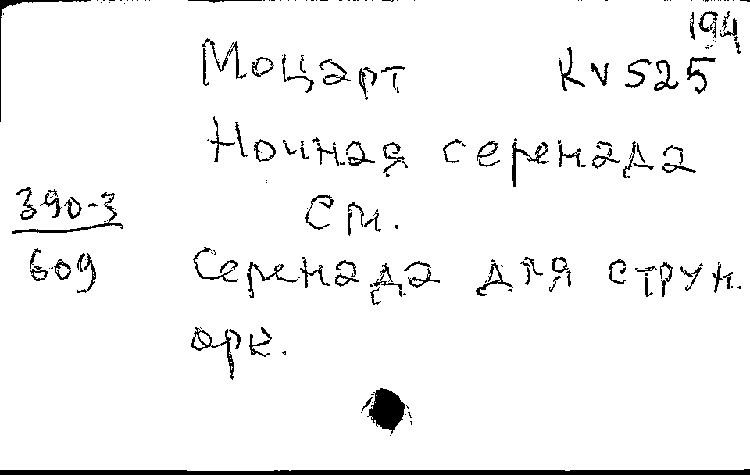 194
Моцарт KV 525
Ночная серенада
390-3 См.
609 Серенада для струн.
орк.